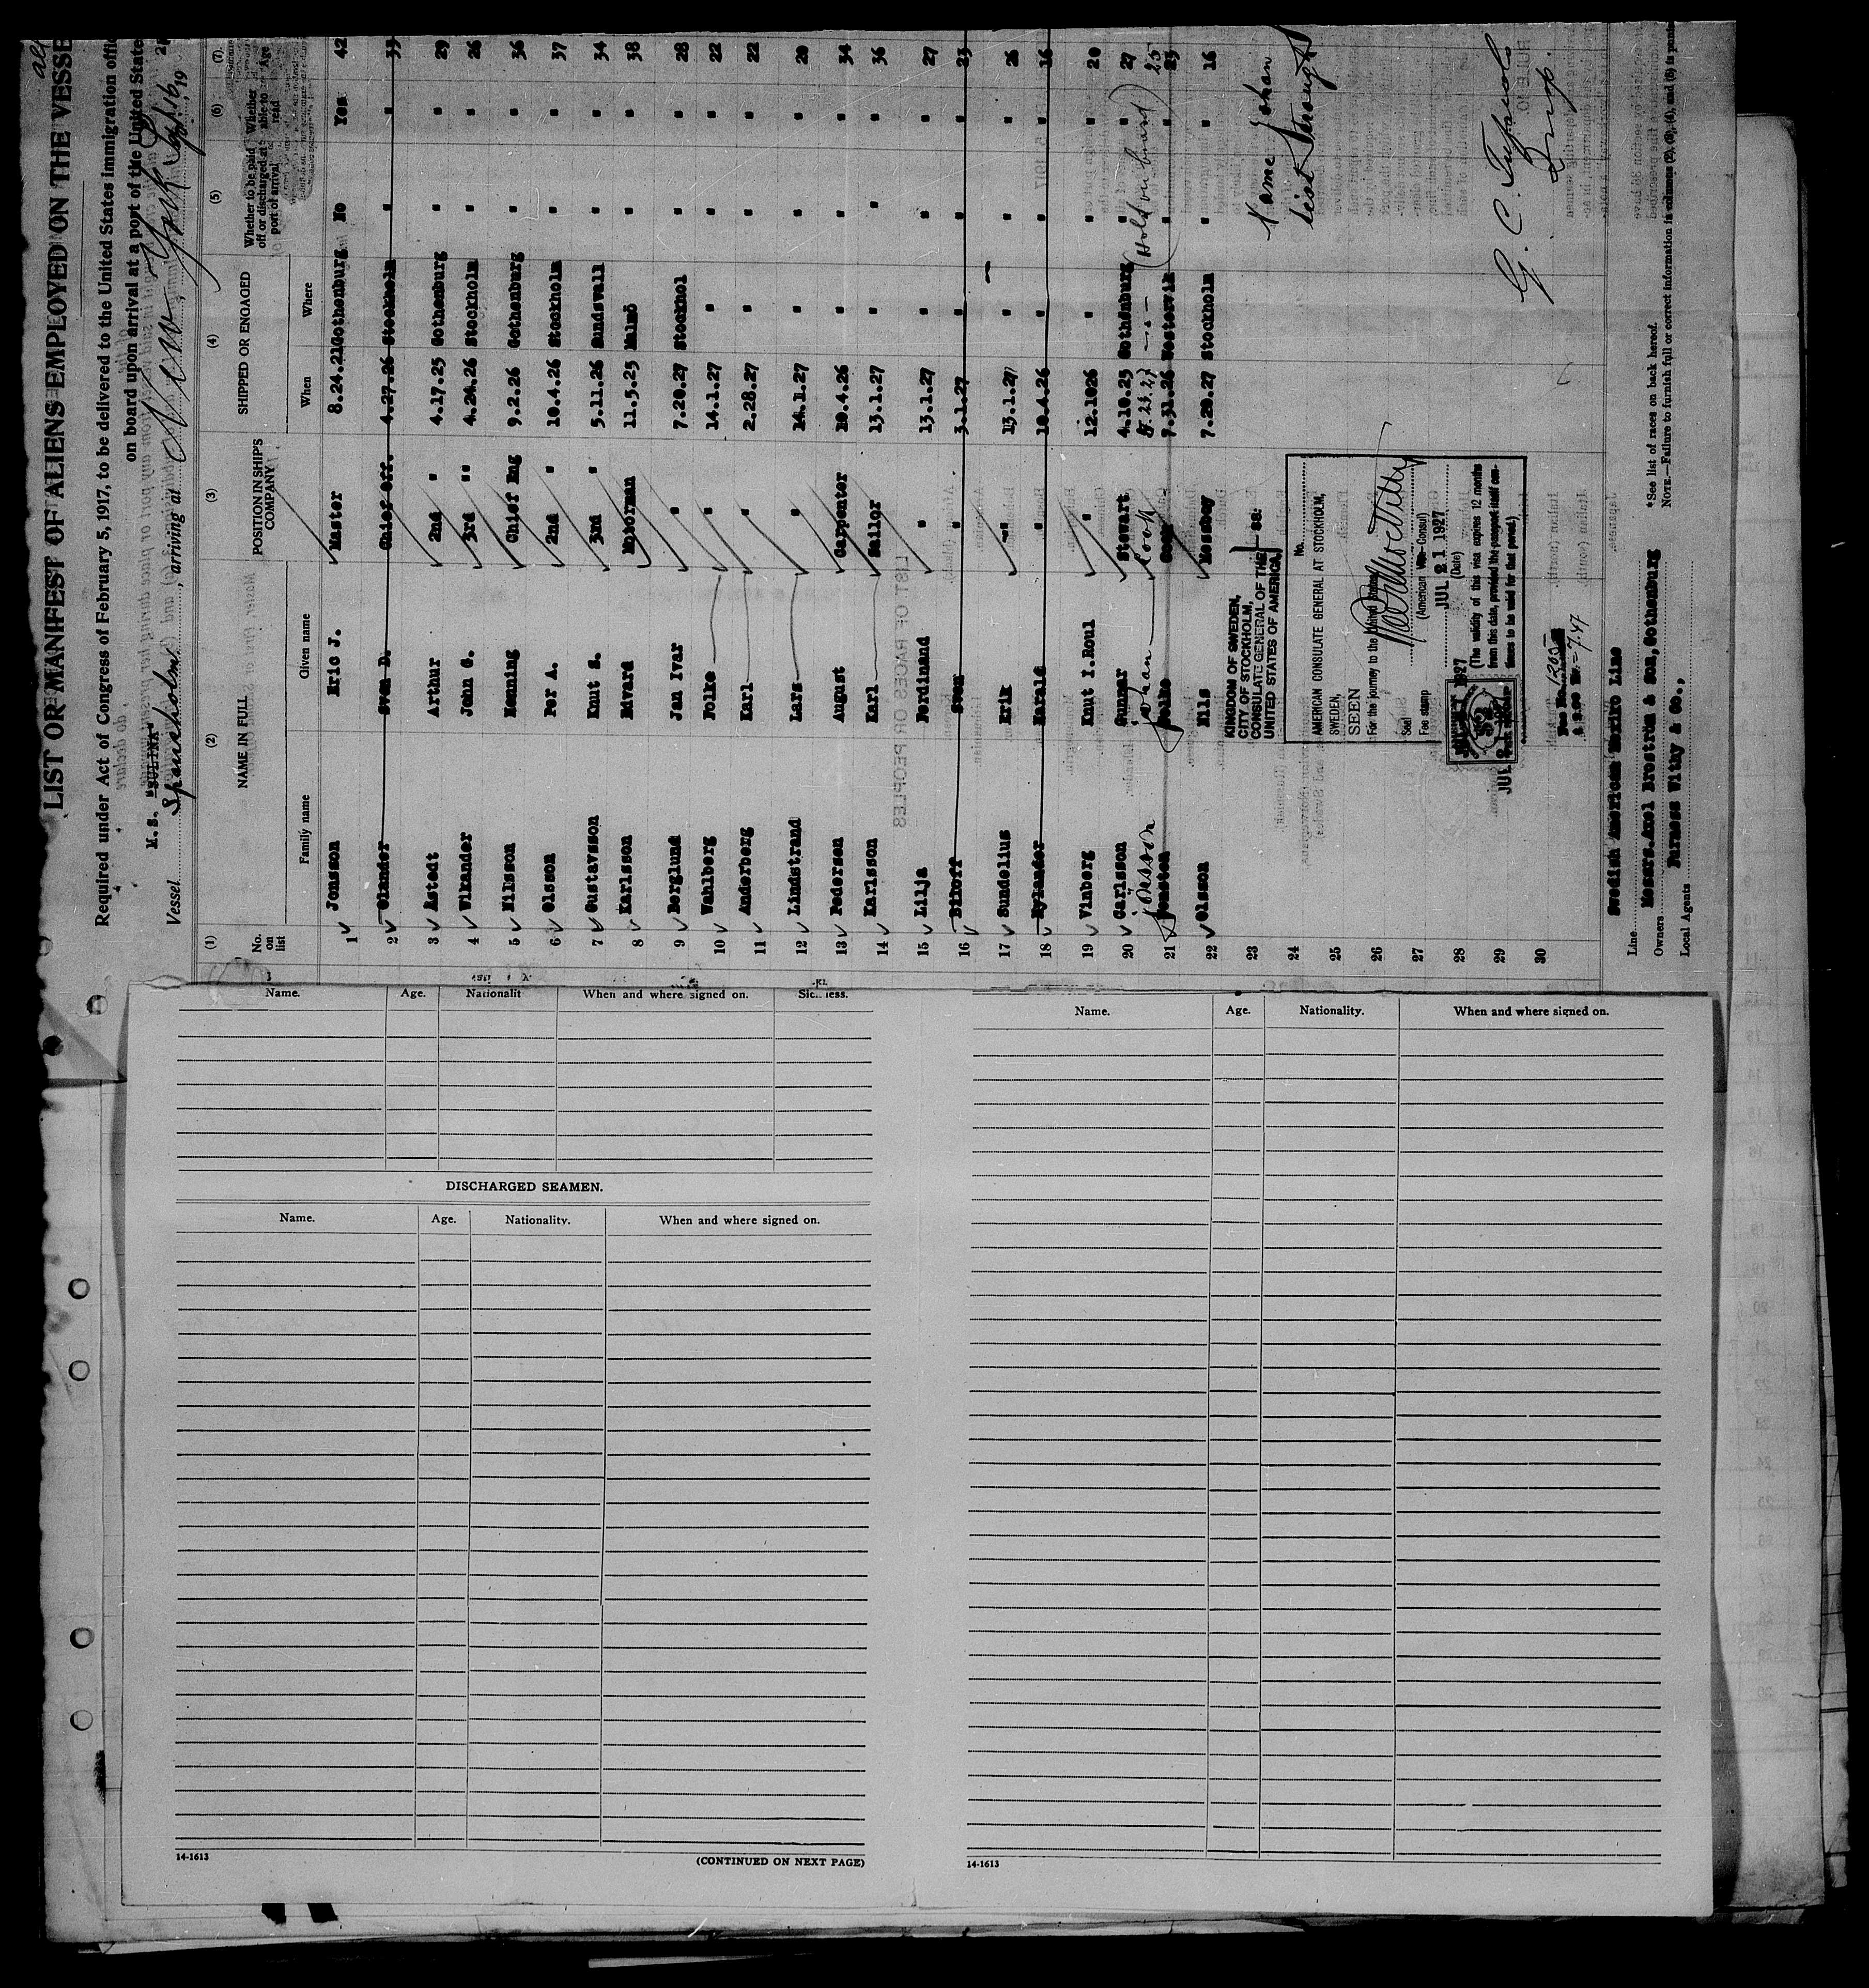 LIST OR MANIFEST OF ALIENS EMPLOYED ON THE VESSE
Required under Act of Congress of February 5, 1917, to be delivered to the United States immigration offic
on board upon arrival at a port of the United State
M.S.
Vessel , arriving at New York 19
(1) (2) (3) (4) (5) (6) (7)
No. on list NAME IN FULL POSITION IN SHIP'S COMPANY SHIPPED OR ENGAGED Whether to be paid off or discharged at port of arrival Whether able to read Age
Family name Given name When Where
1 Jonsson Eric J. Master 8.24.21 Gothenburg No Yes 42
2 Olander Sven D. Chief Off. 4.27.26 Stockholm " " 33
3 Astedt Arthur 2nd " 4.17.25 Gothenburg " " 29
4 Wikander John G. 3rd " 4.24.26 Stockholm " " 26
5 Nilsson Henning Chief Eng 9.2.26 Gothenburg " " 36
6 Olsson Per A. 2nd " 10.4.26 Stockholm " " 37
7 Gustavsson Knut S. 3rd " 5.11.26 Sundsvall " " 34
8 Karlsson Edvard Motorman 11.5.25 Malmö " " 38
9 Berglund Jan Ivar " 7.20.27 Stockhol " " 28
10 Wahlberg Folke " 14.1.27 " " " 22
11 Anderberg Karl " 2.28.27 " " " 22
12 Lindstrand Lars " 14.1.27 " " " 20
13 Pedersen August Carpenter 10.4.26 " " " 34
14 Karlsson Karl Sailor 13.1.27 " " " 36
15 Lilja Ferdinand " 13.1.27 " " " 27
16 Sven " 3.1.27 " " " 23
17 Sundelius Erik " 13.1.27 " " " 26
18 Rylander Harald " 10.4.26 " " " 16
19 Vinberg Knut I.Roul " 12.1026 " " " 20
20 Carlsson Gunnar Stewart 4.10.25 Gothenburg " " 27
Johan Cook (Hold on board) 25
21 Folke Cook 7.31.26 Westervik " " 23
22 Olsson Nils Messboy 7.20.27 Stockholm " " 16
23
24
25
26
27
28
29
30
KINGDOM OF SWEDEN,
CITY OF STOCKHOLM,
CONSULATE GENERAL OF THE
UNITED STATES OF AMERICA,
SS:
Name Johan
No.
AMERICAN CONSULATE GENERAL AT STOCKHOLM,
SWEDEN,
SEEN
For the journey to the United States
(American Vice-Consul)
Seal
Fee stamp
JUL 21 1927
(Date)
(The validity of this visa expires 12 months
from this date, provided the passport itself con-
tinues to be valid for that period.)
Line Swedish American Mexico Line
Owners Messrs.Axel Broström & Son, Gothenburg
Local Agents Furness Withy & Co.,
*See list of races on back hereof.
NOTE.—Failure to furnish full or correct information in columns (2), (3), (4), and (5) is punis
Name. Age. Nationalit When and where signed on.
DISCHARGED SEAMEN.
Name. Age. Nationality. When and where signed on.
14-1613 (CONTINUED ON NEXT PAGE)
Name. Age. Nationality. When and where signed on.
14-1613